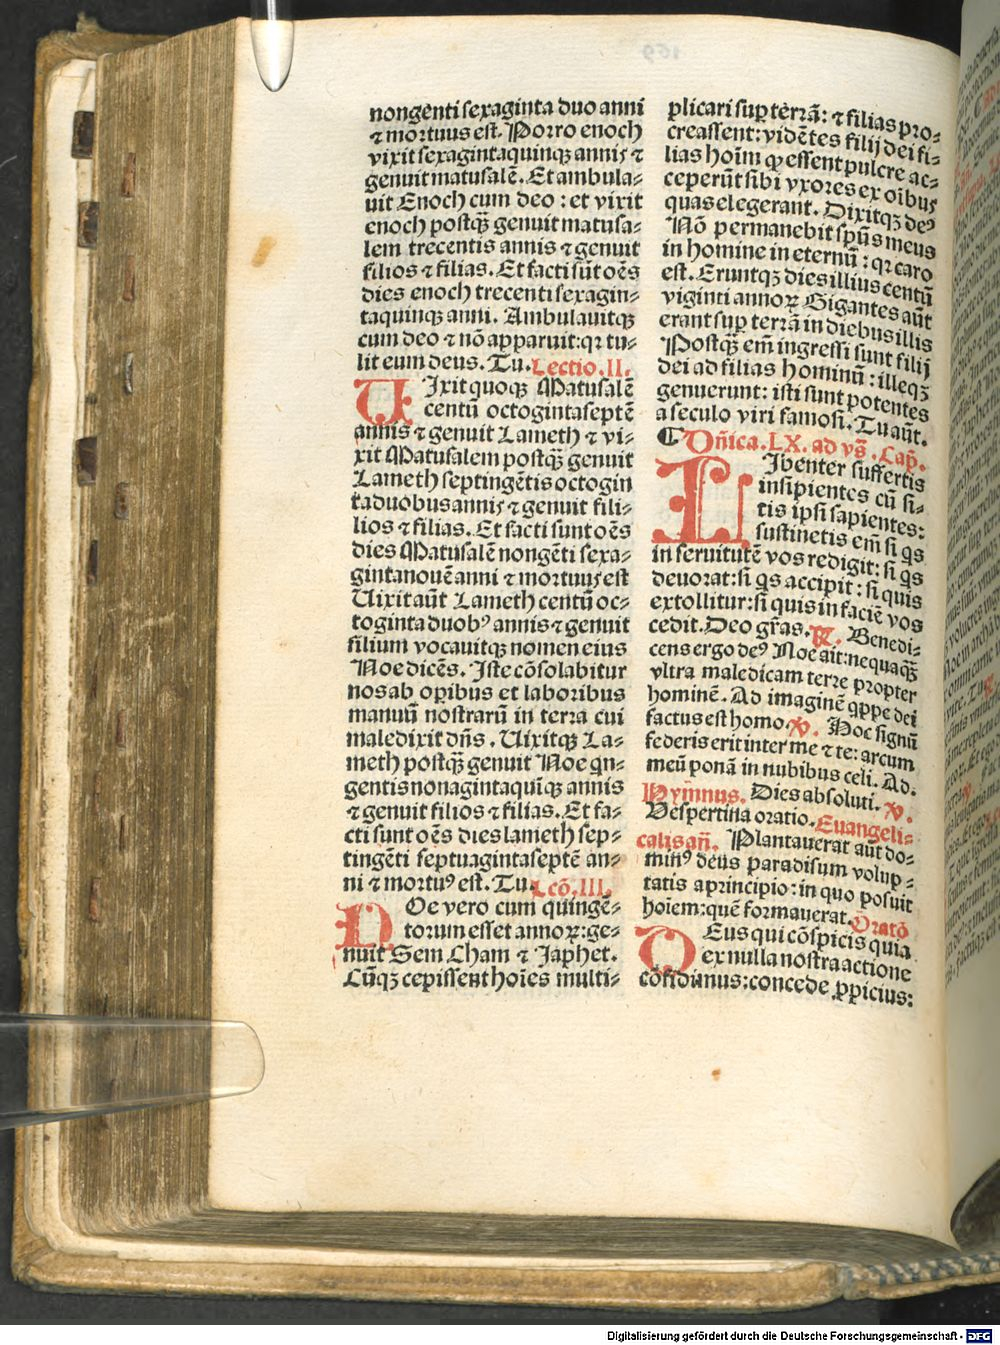 nongenti sexaginta duo anni
⁊ mortuus est. Porro enoch
vixit sexagintaquinqꝫ annis ⁊
genuit matusalē. Et ambula⸗
uit Enoch cum deo : et vixit
enoch postqꝫ̄ genuit matusa⸗
lem trecentis annis ⁊ genuit
filios ⁊ filias. Et facti sūt oēs
dies enoch trecenti sexagin⸗
taquinqꝫ anni. Ambulauitqꝫ
cum deo ⁊ nō apparuit:qꝛ tu⸗
lit eum deus. Tu. Lectio.II.
UJxit quoqꝫ Matusalē
centū octogintaseptē
annis ⁊ genuit Lameth ⁊ vi⸗
xit Matusalem postqꝫ̄ genuit
Lameth septingētis octogin
taduobus annis ⁊ genuit fili⸗
lios ⁊ filias. Et facti sunt oēs
dies Matusalē nongēti sexa⸗
gintanouē anni ⁊ mortuus est
Uixit aūt Lameth centū oc⸗
toginta duobꝰ annis ⁊ genuit
filium vocauitqꝫ nomen eius
Noe dicēs. Iste cōsolabitur
nos ab oꝑibus et laboribus
manuū nostrarū in terra cui
maledixit dn̄s. Uixitqꝫ La⸗
meth postqꝫ̄ genuit Noe qn̄⸗
gentis nonagintaquīqꝫ annis
⁊ genuit filios ⁊ filias. Et fa⸗
cti sunt oēs dies lameth sep⸗
tingēti septuagintaseptē an⸗
ni ⁊ mortuꝰ est. Tu. Lcō.III.
NOe vero cum quingē⸗
torum esset annoꝝ:ge⸗
nuit Sem Cham ⁊ Japhet.
Cūqꝫ cepissent hoīes multi⸗
plicari suꝑ terrā: ⁊ filias pro⸗
creassent: vidētes filij dei fi⸗
lias hoīm ꝙ essent pulcre ac⸗
ceperūt sibi vxores ex oībus
quas elegerant. Dixitqꝫ deꝰ
Nō permanebit spūs meus
in homine in eternū : qꝛ caro
est. Eruntqꝫ dies illius centū
viginti annoꝝ Gigantes aūt
erant suꝑ terrā in diebus illis
Postqꝫ̄ em̄ ingressi sunt filij
dei ad filias hominū : illeqꝫ
genuerunt: isti sunt potentes
a seculo viri famosi. Tu aūt.
¶ Dn̄ica.LX. ad vs̄. Cap̄.
LIbenter suffertis
insipientes cū si⸗
tis ipsi sapientes:
sustinetis em̄ si qs
in seruitutē vos redigit: si qs
deuorat: si qs accipit : si quis
extollitur: si quis in faciē vos
cedit. Deo grās. ℟. Benedi⸗
cens ergo deꝰ Noe ait: nequaqꝫ̄
vltra maledicam terre propter
hominē. Ad imaginē qꝑpe dei
factus est homo. ℣. Hoc signū
federis erit inter me ⁊ te: arcum
meū ponā in nubibus celi. Ad.
Hym̄nus. Dies absoluti. ℣.
Vespertina oratio. Euangeli⸗
calis an̄. Plantauerat aūt do⸗
minꝰ deus paradisum volup⸗
tatis a principio: in quo posuit
hoīem: quē formauerat. Oratō
DEus qui cōspicis quia
ex nulla nostra actione
cōfidimus: concede ꝓpicius:
Digitalisierung gefördert durch die Deutsche Forschungsgemeinschaft - DFG